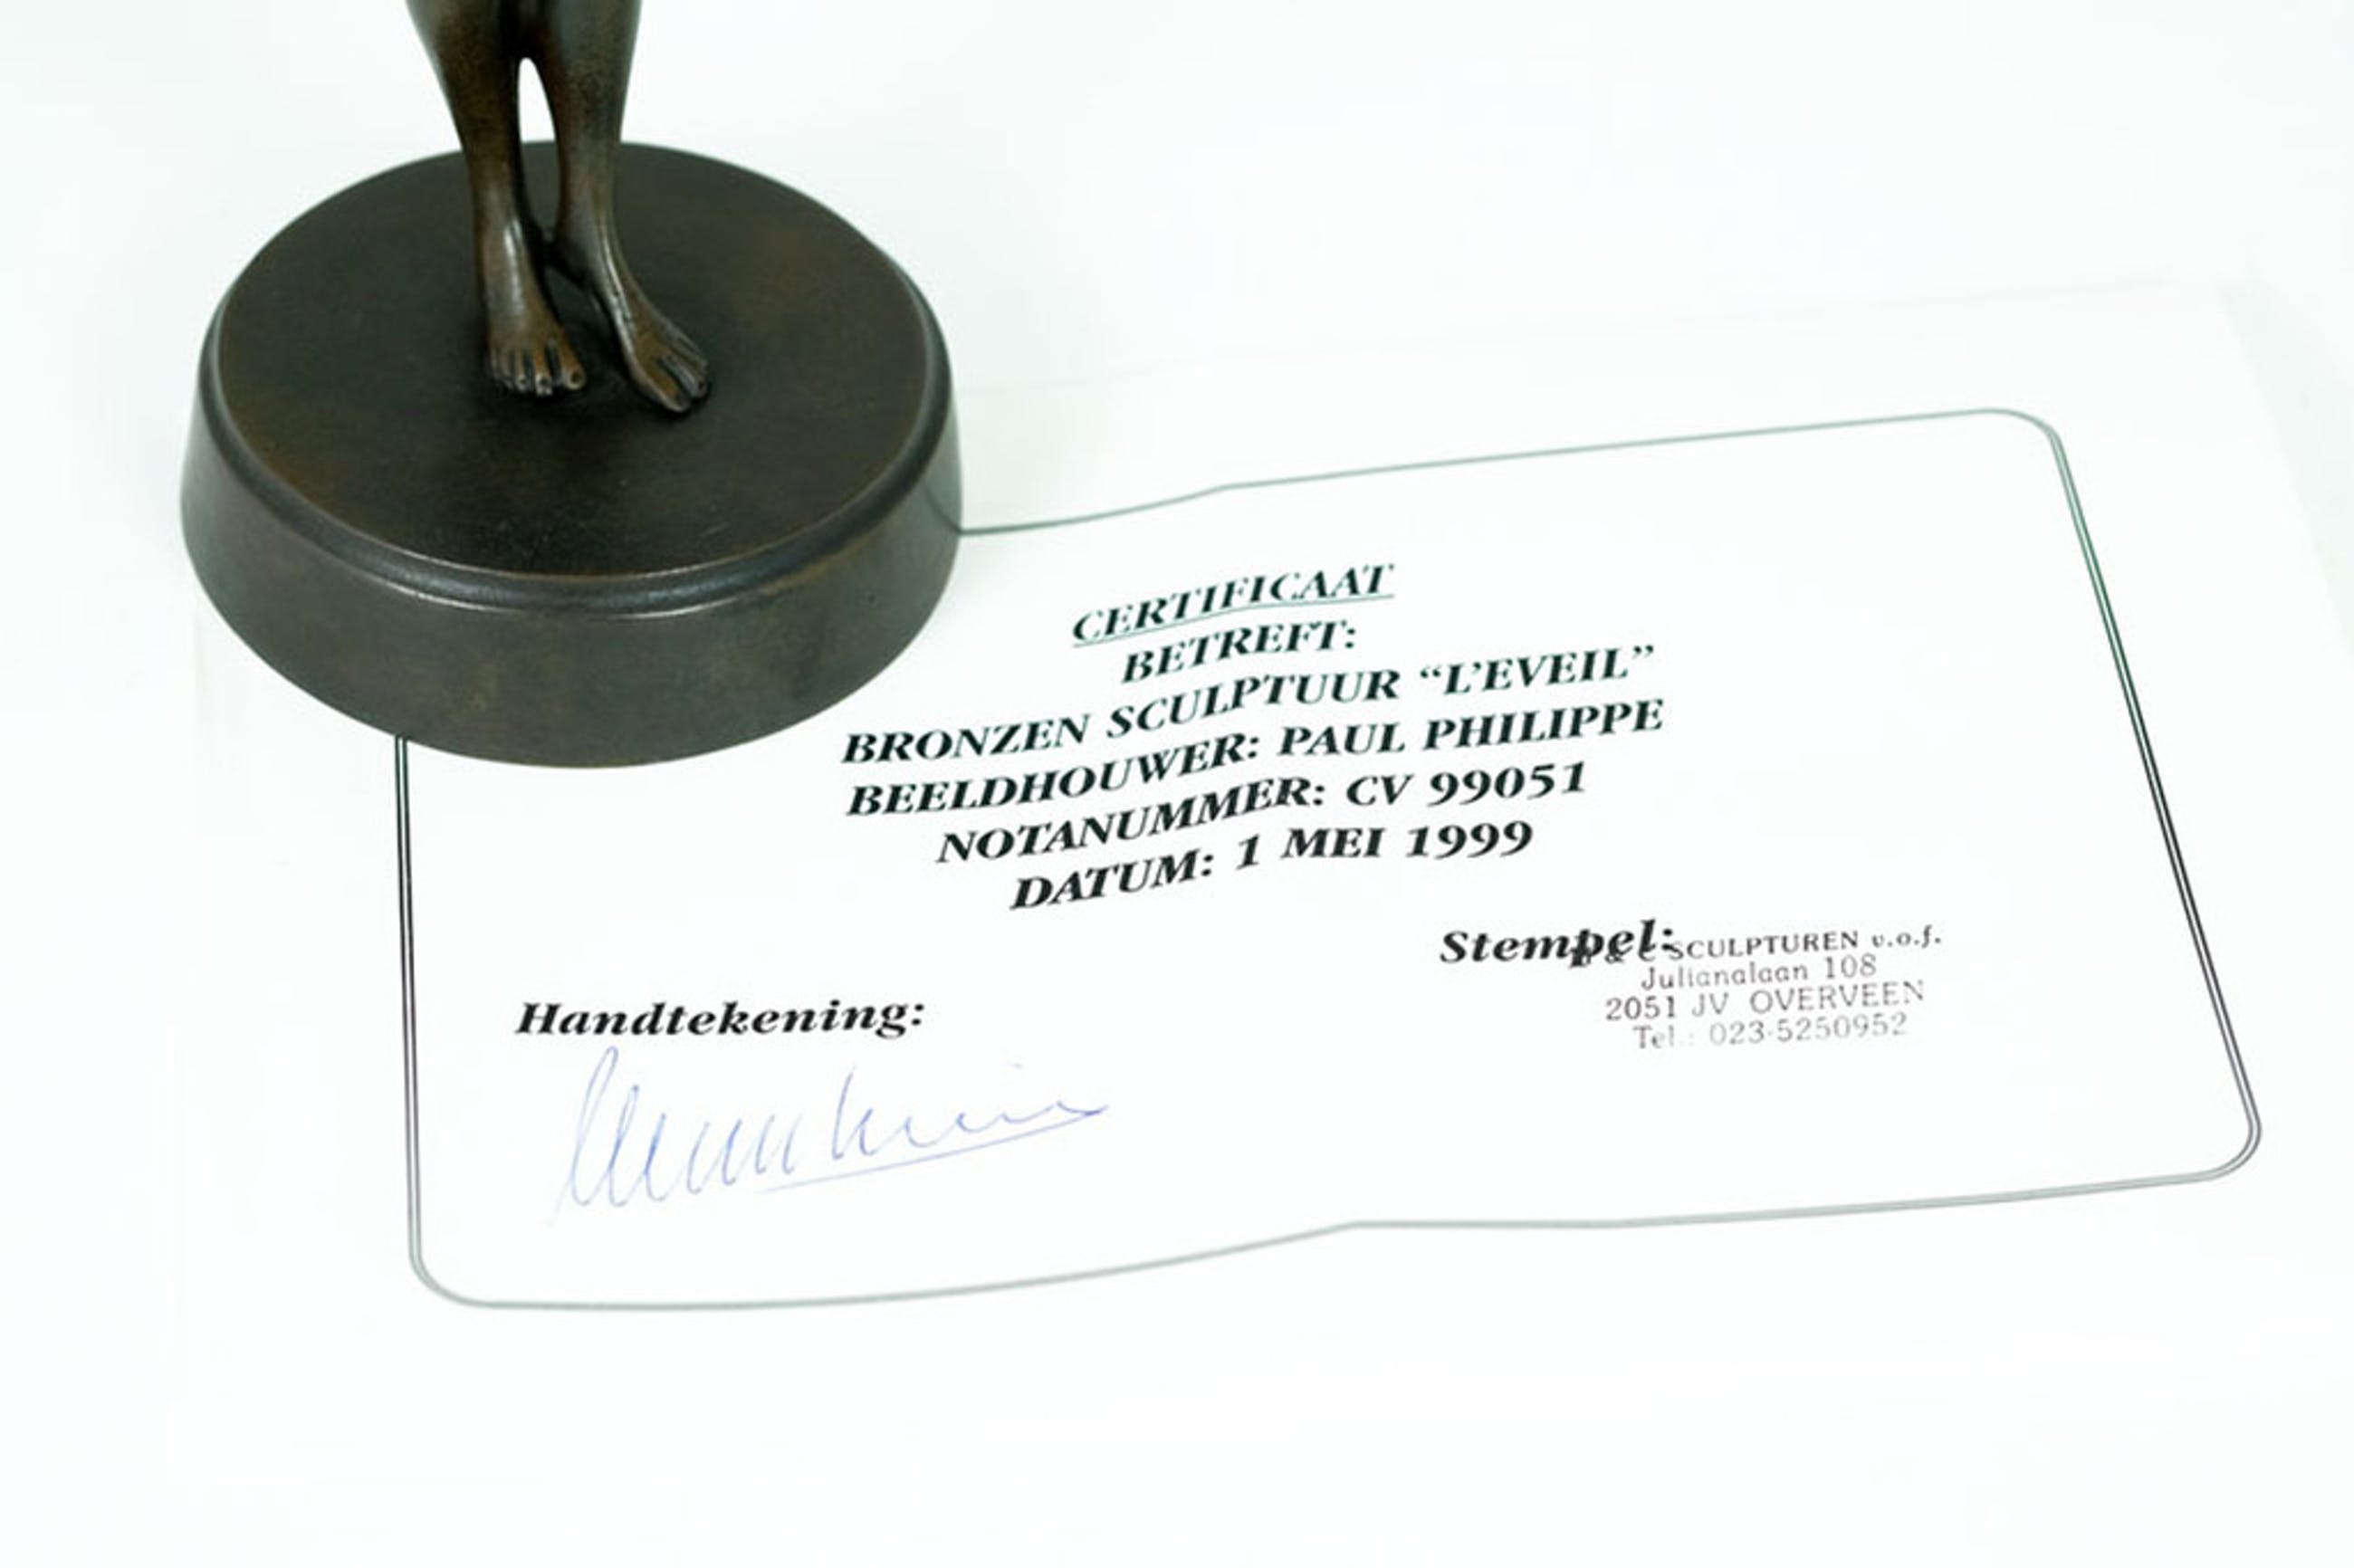 CERTIFICAAT
BETREFT:
BRONZEN SCULPTUUR “L’EVEIL”
BEELDHOUWER: PAUL PHILIPPE
NOTANUMMER: CV 99051
DATUM: 1 MEI 1999
Stempel:
& C SCULPTUREN v.o.f.
Julianalaan 108
2051 JV OVERVEEN
Tel.: 023-5250952
Handtekening: